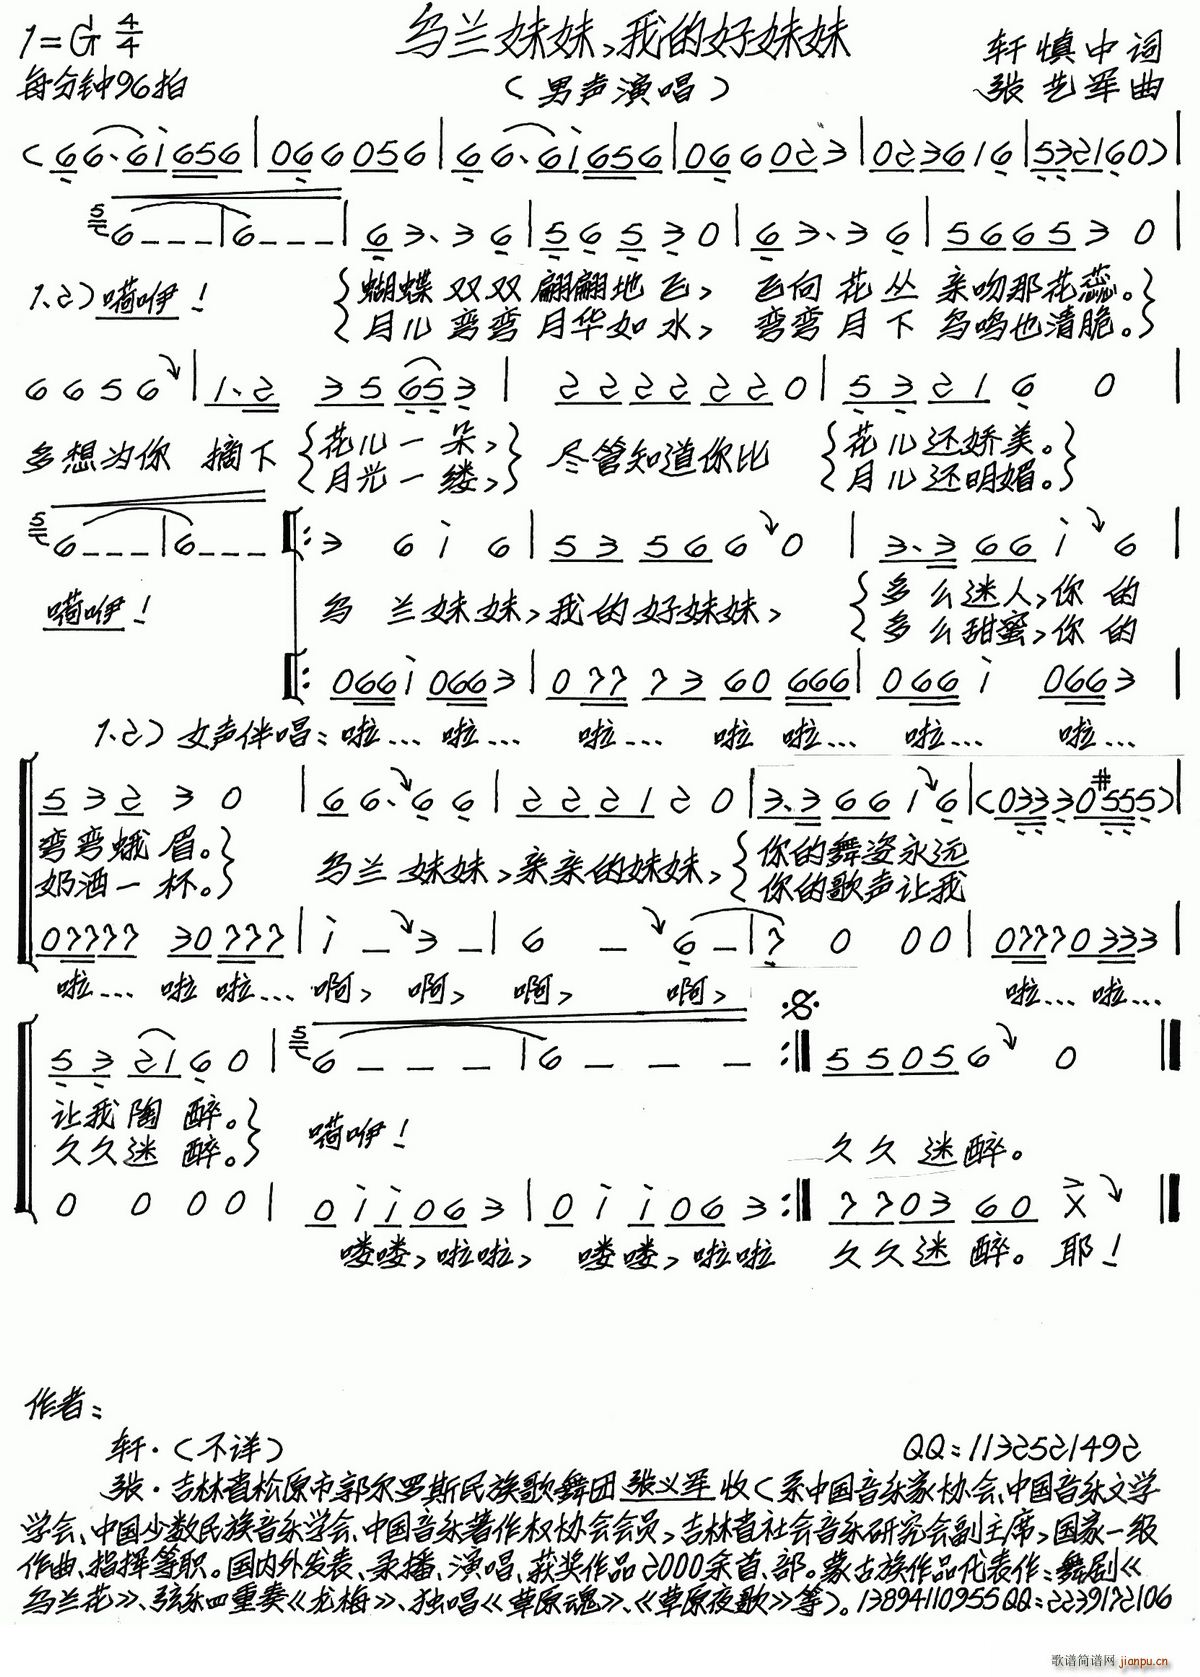 1=G 4/4
乌兰妹妹,我的好妹妹
轩慎中词
每分钟96拍
(男声演唱)
张艺军曲
(6 6·6i656|066056|6 6·6i656|066023|023616|532160)|
5 6---|6---|6 3·3 6|5 6 5 3 0|6 3·3 6|56653 0|
1.2)嗬咿!
{蝴蝶双双翩翩地飞, 飞向花丛亲吻那花蕊。}
{月儿弯弯月华如水, 弯弯月下鸟鸣也清脆。}
6 6 5 6|1·2 3 5 65 3|2 2 2 2 2 2 0|5 3 2 1 6 0|
多想为你摘下{花儿一朵,} 尽管知道你比{花儿还娇美。}
{月光一缕,} {月儿还明媚。}
5 6---|6---‖:3 6 i 6|53 566 0|3·3 66 i 6|
嗬咿! 乌兰妹妹,我的好妹妹,{多么迷人,你的
{多么甜蜜,你的
‖:066i 0663|077 73 60 666|066 i 0663|
1.2)女声伴唱:啦… 啦… 啦… 啦 啦… 啦… 啦…
5 3 2 3 0|66·6 6|2 2 2 1 2 0|3·3 66 i 6|(0333 0#555)|
弯弯蛾眉。} 乌兰妹妹,亲亲的妹妹,{你的舞姿永远
奶酒一杯。} {你的歌声让我
07777 30777|i - 3 -|6 - 6 -|7 0 00|07770333|
啦… 啦 啦… 啊, 啊, 啊, 啊, 啦… 啦…
5 3 21 6 0|5 6---|6---:‖55056 0‖
让我陶醉。} 嗬咿! 久久迷醉。
久久迷醉。}
0 0 0 0|0ii063|0ii063:‖7703 60 X‖
喽喽,啦啦, 喽喽,啦啦 久久迷醉。耶!
作者:
轩·(不详) QQ:1132521492
张·吉林省松原市郭尔罗斯民族歌舞团张义军收(系中国音乐家协会、中国音乐文学
学会、中国少数民族音乐学会、中国音乐著作权协会会员,吉林省社会音乐研究会副主席,国家一级
作曲、指挥等职。国内外发表、录播、演唱、获奖作品2000余首、部。蒙古族作品代表作:舞剧《
乌兰花》、弦乐四重奏《龙梅》、独唱《草原魂》、《草原夜歌》等)。13894110955QQ:2239172106
歌谱简谱网
jianpu.cn